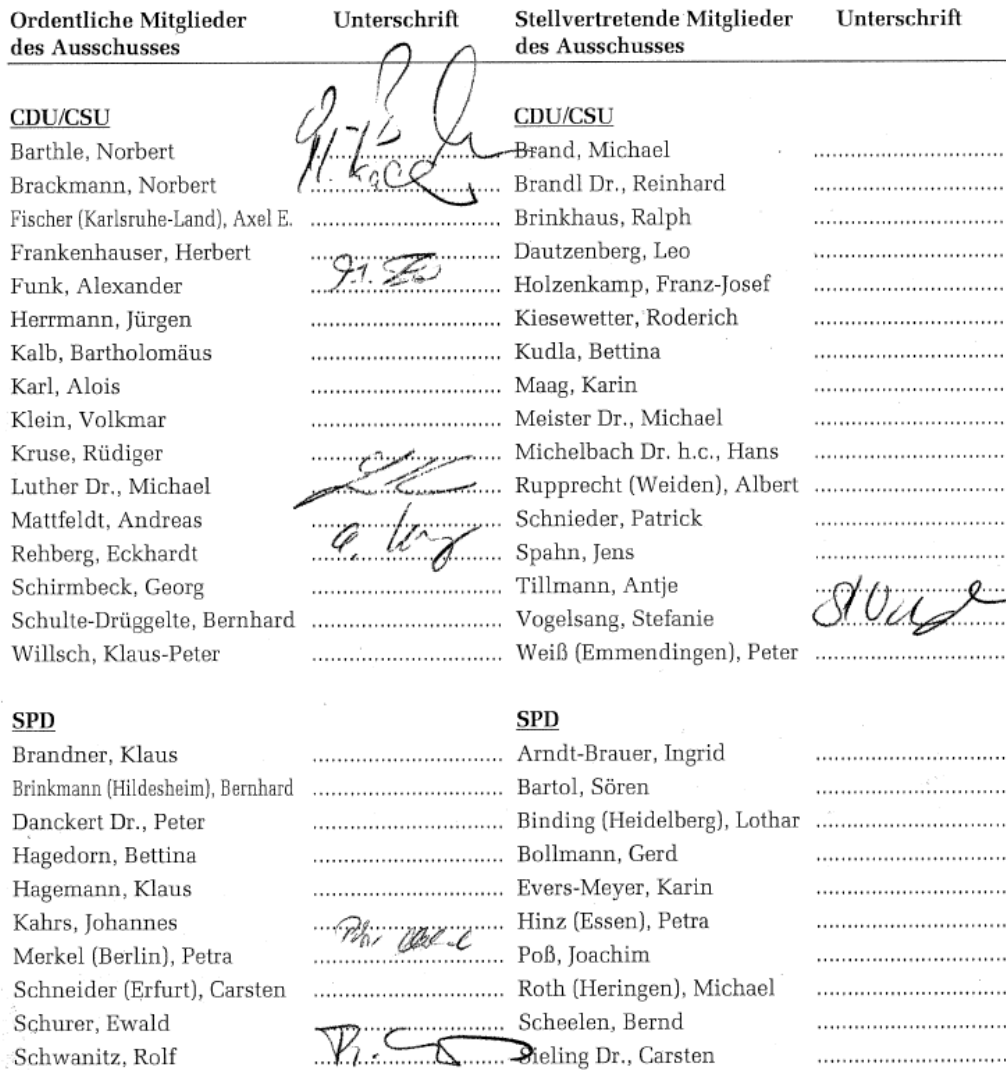 Ordentliche Mitglieder des Ausschusses Unterschrift Stellvertretende Mitglieder des Ausschusses Unterschrift
CDU/CSU CDU/CSU
Barthle, Norbert Brand, Michael
Brackmann, Norbert Brandl Dr., Reinhard
Fischer (Karlsruhe-Land), Axel E. Brinkhaus, Ralph
Frankenhauser, Herbert Dautzenberg, Leo
Funk, Alexander Holzenkamp, Franz-Josef
Herrmann, Jürgen Kiesewetter, Roderich
Kalb, Bartholomäus Kudla, Bettina
Karl, Alois Maag, Karin
Klein, Volkmar Meister Dr., Michael
Kruse, Rüdiger Michelbach Dr. h.c., Hans
Luther Dr., Michael Rupprecht (Weiden), Albert
Mattfeldt, Andreas Schnieder, Patrick
Rehberg, Eckhardt Spahn, Jens
Schirmbeck, Georg Tillmann, Antje
Schulte-Drüggelte, Bernhard Vogelsang, Stefanie
Willsch, Klaus-Peter Weiß (Emmendingen), Peter
SPD SPD
Brandner, Klaus Arndt-Brauer, Ingrid
Brinkmann (Hildesheim), Bernhard Bartol, Sören
Danckert Dr., Peter Binding (Heidelberg), Lothar
Hagedorn, Bettina Bollmann, Gerd
Hagemann, Klaus Evers-Meyer, Karin
Kahrs, Johannes Hinz (Essen), Petra
Merkel (Berlin), Petra Poß, Joachim
Schneider (Erfurt), Carsten Roth (Heringen), Michael
Schurer, Ewald Scheelen, Bernd
Schwanitz, Rolf Sieling Dr., Carsten